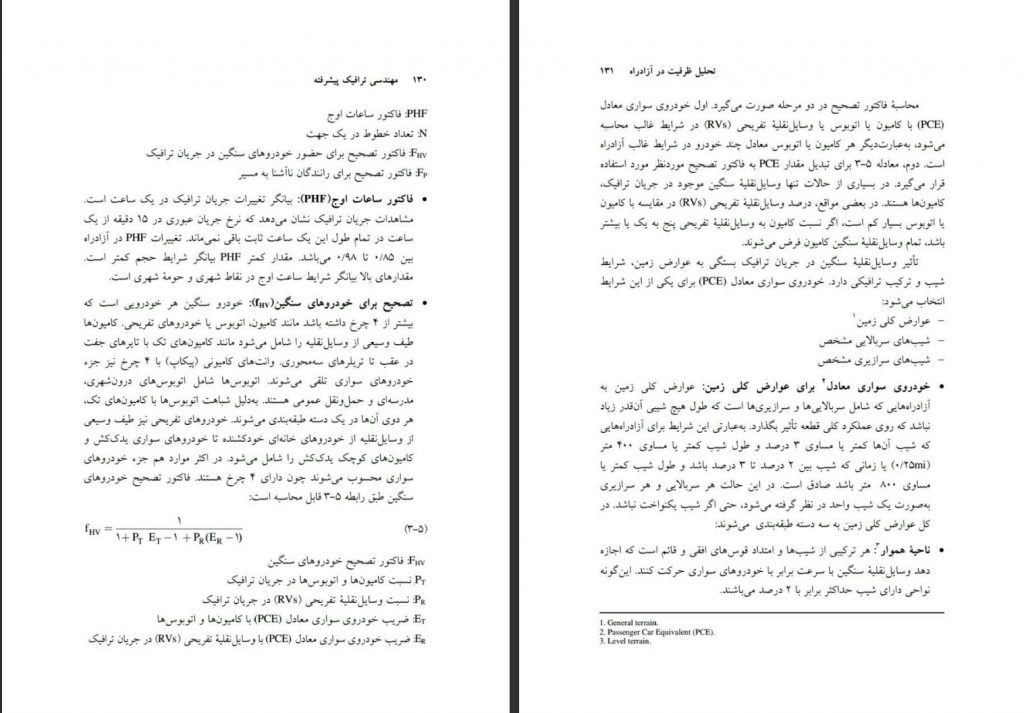 ۱۳۰ مهندسی ترافیک پیشرفته
PHF: فاکتور ساعات اوج
N: تعداد خطوط در یک جهت
F_HV: فاکتور تصحیح برای حضور خودروهای سنگین در جریان ترافیک
F_P: فاکتور تصحیح برای رانندگان ناآشنا به مسیر
• فاکتور ساعات اوج(PHF): بیانگر تغییرات جریان ترافیک در یک ساعت است.
مشاهدات جریان ترافیک نشان می‌دهد که نرخ جریان عبوری در ۱۵ دقیقه از یک
ساعت در تمام طول این یک ساعت ثابت باقی نمی‌ماند. تغییرات PHF در آزادراه
بین ۰/۸۵ تا ۰/۹۸ می‌باشد. مقدار کمتر PHF بیانگر شرایط حجم کمتر است.
مقدارهای بالا بیانگر شرایط ساعت اوج در نقاط شهری و حومهٔ شهری است.
• تصحیح برای خودروهای سنگین(f_HV): خودرو سنگین هر خودرویی است که
بیشتر از ۴ چرخ داشته باشد مانند کامیون، اتوبوس یا خودروهای تفریحی. کامیون‌ها
طیف وسیعی از وسایل‌نقلیه را شامل می‌شود مانند کامیون‌های تک با تایرهای جفت
در عقب تا تریلرهای سه‌محوری. وانت‌های کامیونی (پیکاپ) با ۴ چرخ نیز جزء
خودروهای سواری تلقی می‌شوند. اتوبوس‌ها شامل اتوبوس‌های درون‌شهری،
مدرسه‌ای و حمل‌ونقل عمومی هستند. به‌دلیل شباهت اتوبوس‌ها با کامیون‌های تک،
هر دوی آن‌ها در یک دسته طبقه‌بندی می‌شوند. خودروهای تفریحی نیز طیف وسیعی
از وسایل‌نقلیه از خودروهای خانه‌ای خودکشنده تا خودروهای سواری یدک‌کش و
کامیون‌های کوچک یدک‌کش را شامل می‌شود. در اکثر موارد هم جزء خودروهای
سواری محسوب می‌شوند چون دارای ۴ چرخ هستند. فاکتور تصحیح خودروهای
سنگین طبق رابطه ۵-۳ قابل محاسبه است:
f_HV = ۱ / (۱+P_T E_T −۱ +P_R(E_R −۱)) (۳-۵)
F_HV: فاکتور تصحیح خودروهای سنگین
P_T: نسبت کامیون‌ها و اتوبوس‌ها در جریان ترافیک
P_R: نسبت وسایل‌نقلیهٔ تفریحی (RVs) در جریان ترافیک
E_T: ضریب خودروی سواری معادل (PCE) با کامیون‌ها و اتوبوس‌ها
E_R: ضریب خودروی سواری معادل (PCE) با وسایل‌نقلیهٔ تفریحی (RVs) در جریان ترافیک
تحلیل ظرفیت در آزادراه ۱۳۱
محاسبهٔ فاکتور تصحیح در دو مرحله صورت می‌گیرد. اول خودروی سواری معادل
(PCE) با کامیون یا اتوبوس یا وسایل‌نقلیهٔ تفریحی (RVs) در شرایط غالب محاسبه
می‌شود، به‌عبارت‌دیگر هر کامیون یا اتوبوس معادل چند خودرو در شرایط غالب آزادراه
است. دوم، معادله ۵-۳ برای تبدیل مقدار PCE به فاکتور تصحیح موردنظر مورد استفاده
قرار می‌گیرد. در بسیاری از حالات تنها وسایل‌نقلیهٔ سنگین موجود در جریان ترافیک،
کامیون‌ها هستند. در بعضی مواقع، درصد وسایل‌نقلیهٔ تفریحی (RVs) در مقایسه با کامیون
یا اتوبوس بسیار کم است، اگر نسبت کامیون به وسایل‌نقلیهٔ تفریحی پنج به یک یا بیشتر
باشد، تمام وسایل‌نقلیهٔ سنگین کامیون فرض می‌شوند.
تأثیر وسایل‌نقلیهٔ سنگین در جریان ترافیک بستگی به عوارض زمین، شرایط
شیب و ترکیب ترافیکی دارد. خودروی سواری معادل (PCE) برای یکی از این شرایط
انتخاب می‌شود:
– عوارض کلی زمین۱
– شیب‌های سربالایی مشخص
– شیب‌های سرازیری مشخص
• خودروی سواری معادل۲ برای عوارض کلی زمین: عوارض کلی زمین به
آزادراه‌هایی که شامل سربالایی‌ها و سرازیری‌ها است که طول هیچ شیبی آن‌قدر زیاد
نباشد که روی عملکرد کلی قطعه تأثیر بگذارد. به‌عبارتی این شرایط برای آزادراه‌هایی
که شیب آن‌ها کمتر یا مساوی ۳ درصد و طول شیب کمتر یا مساوی ۴۰۰ متر
(۰/۲۵mi) یا زمانی که شیب بین ۲ درصد تا ۳ درصد باشد و طول شیب کمتر یا
مساوی ۸۰۰ متر باشد صادق است. در این حالت هر سربالایی و هر سرازیری
به‌صورت یک شیب واحد در نظر گرفته می‌شود، حتی اگر شیب یکنواخت نباشد. در
کل عوارض کلی زمین به سه دسته طبقه‌بندی می‌شوند:
• ناحیهٔ هموار۳: هر ترکیبی از شیب‌ها و امتداد قوس‌های افقی و قائم است که اجازه
دهد وسایل‌نقلیهٔ سنگین با سرعت برابر با خودروهای سواری حرکت کنند. این‌گونه
نواحی دارای شیب حداکثر برابر با ۲ درصد می‌باشند.
1. General terrain.
2. Passenger Car Equivalent (PCE).
3. Level terrain.